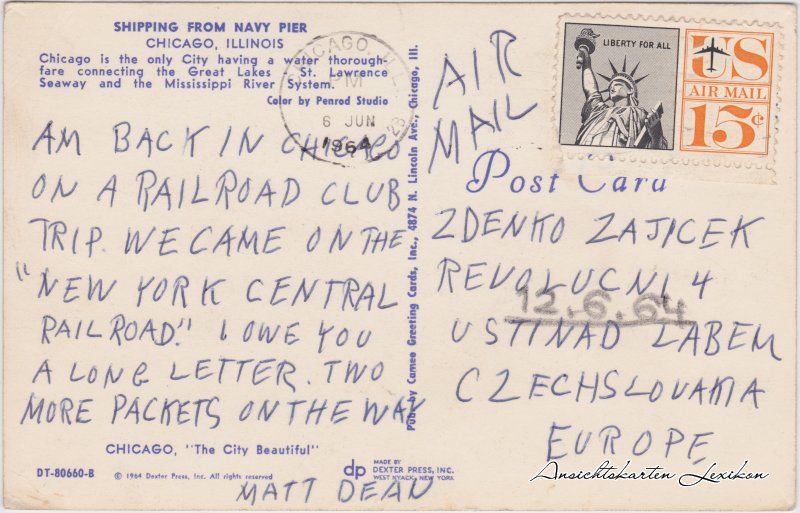 SHIPPING FROM NAVY PIER
CHICAGO, ILLINOIS
Chicago is the only City having a water thorough-
fare connecting the Great Lakes - St. Lawrence
Seaway and the Mississippi River System.
Color by Penrod Studio
AM BACK IN CHICAGO
ON A RAILROAD CLUB
TRIP. WE CAME ON THE
"NEW YORK CENTRAL
RAILROAD." I OWE YOU
A LONG LETTER. TWO
MORE PACKETS ON THE WAY
CHICAGO, "The City Beautiful"
DT-80660-B
© 1964 Dexter Press, Inc. All rights reserved
MATT DEAN
dp
MADE BY
DEXTER PRESS, INC.
WEST NYACK, NEW YORK
Pub. by Cameo Greeting Cards, Inc., 4874 N. Lincoln Ave., Chicago, Ill.
CHICAGO, ILL.
PM
6 JUN
1964
23
AIR
MAIL
LIBERTY FOR ALL
US
AIR MAIL
15¢
Post Card
ZDENKO ZAJICEK
REVOLUCNI 4
12.6.64
USTINAD LABEM
CZECHSLOVAKIA
EUROPE
Ansichtskarten Lexikon